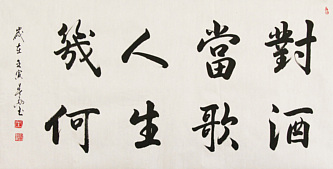 對酒
當歌
人生
幾何
歲在